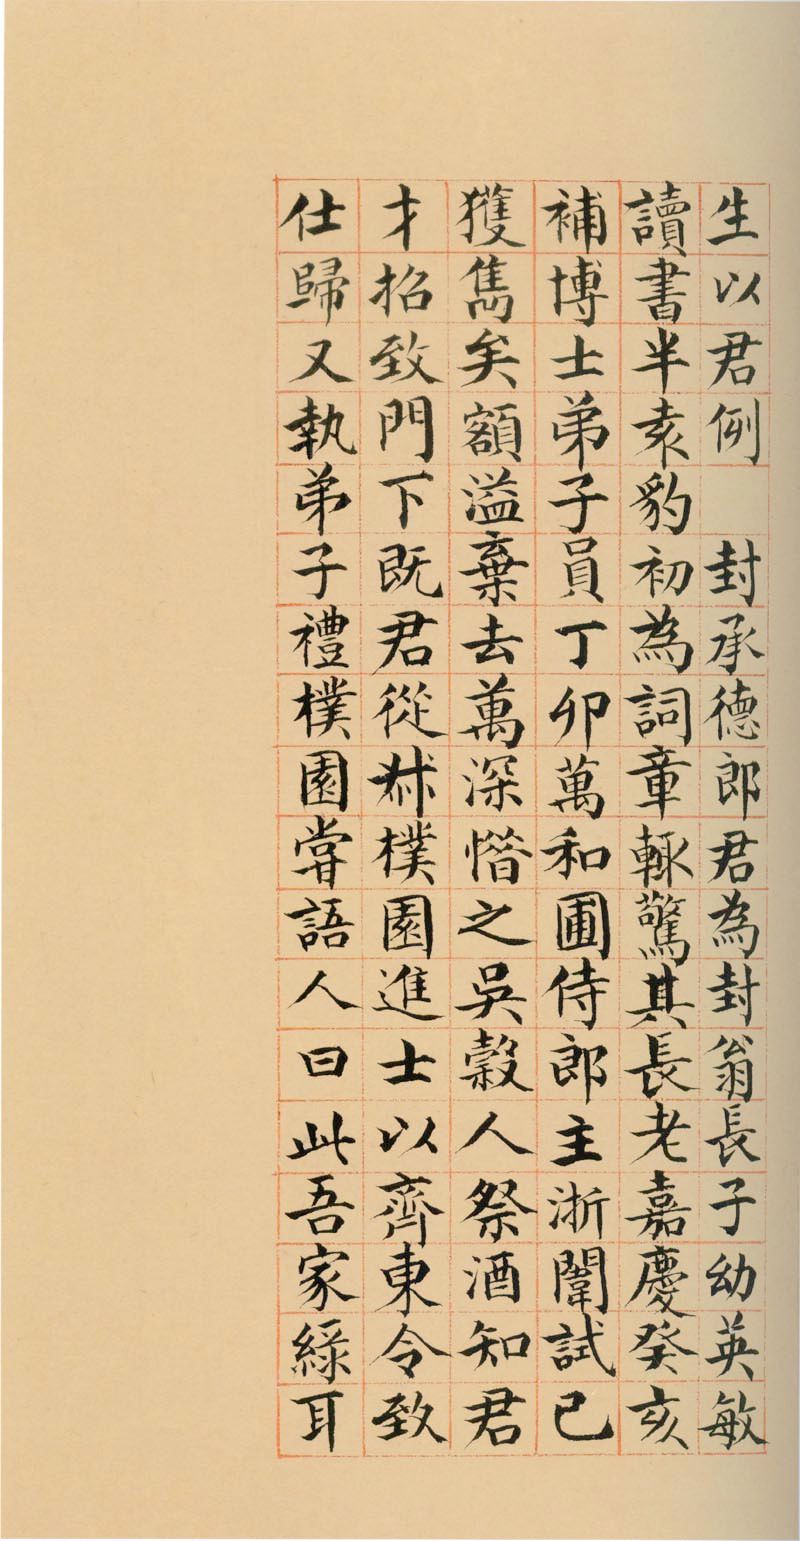 生以君例　封承德郎君為封翁長子幼英敏
讀書半袁豹初為詞章輒驚其長老嘉慶癸亥
補博士弟子員丁卯萬和圃侍郎主浙闈試已
獲雋矣額溢棄去萬深惜之吳穀人祭酒知君
才招致門下既君從叔樸園進士以齊東令致
仕歸又執弟子禮樸園嘗語人曰此吾家綠耳